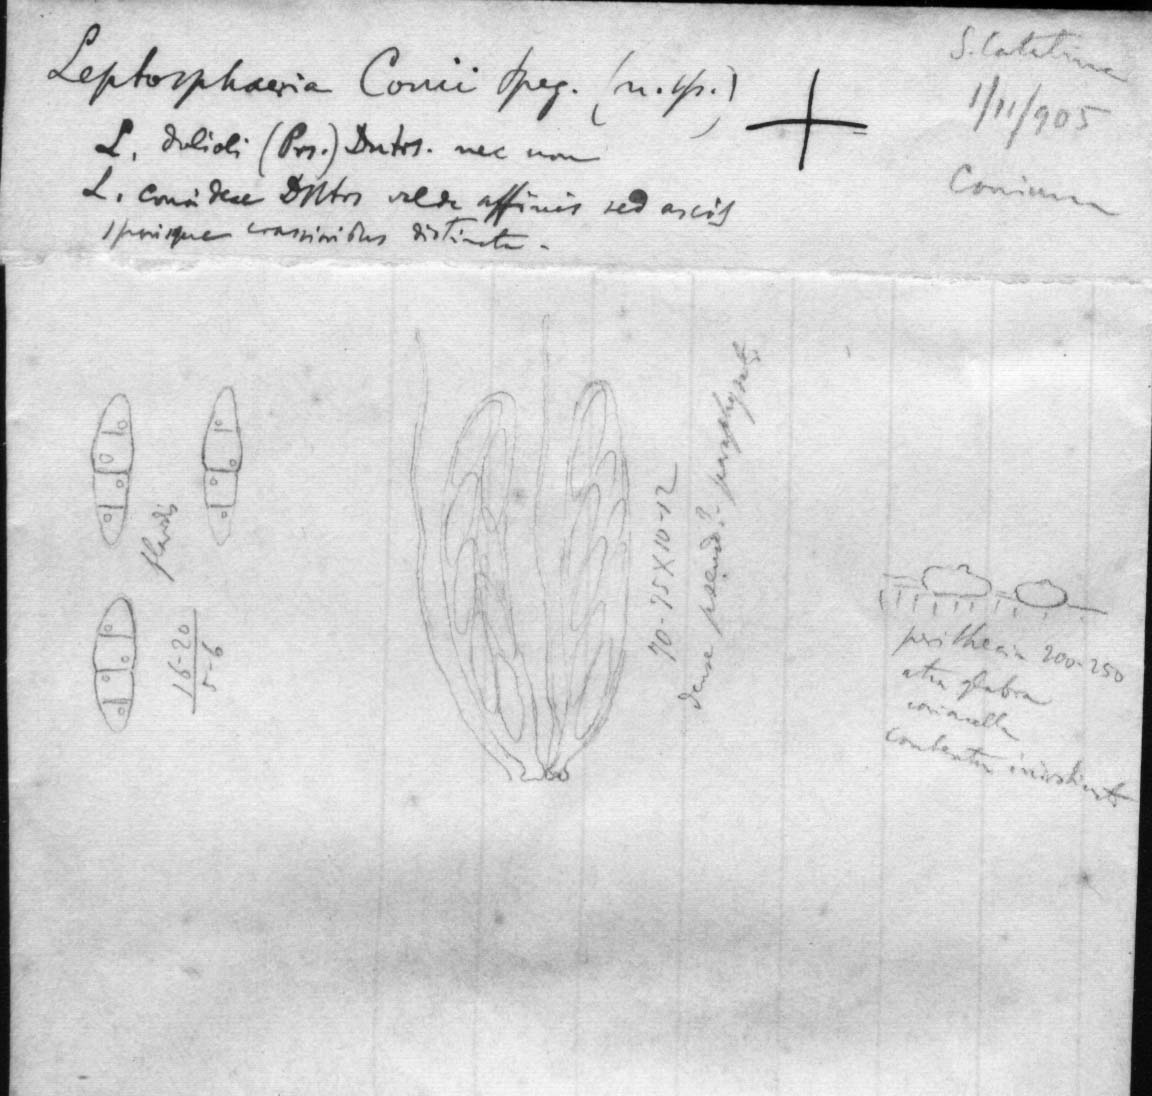 Leptosphaeria Conii Speg. (n. sp.)
L. dolioli (Prs.) Dntrs. nec non
L. conoidese DNtrs valde affinis sed ascis
sporisque crassioribus distincta.
S. Catalina
1/11/905
Conium
flavidi
16-20
5-6
70-75 X 10-12
dense pseudo? paraphysati
perithecia 200-250
atra glabra
coriacella
contextu